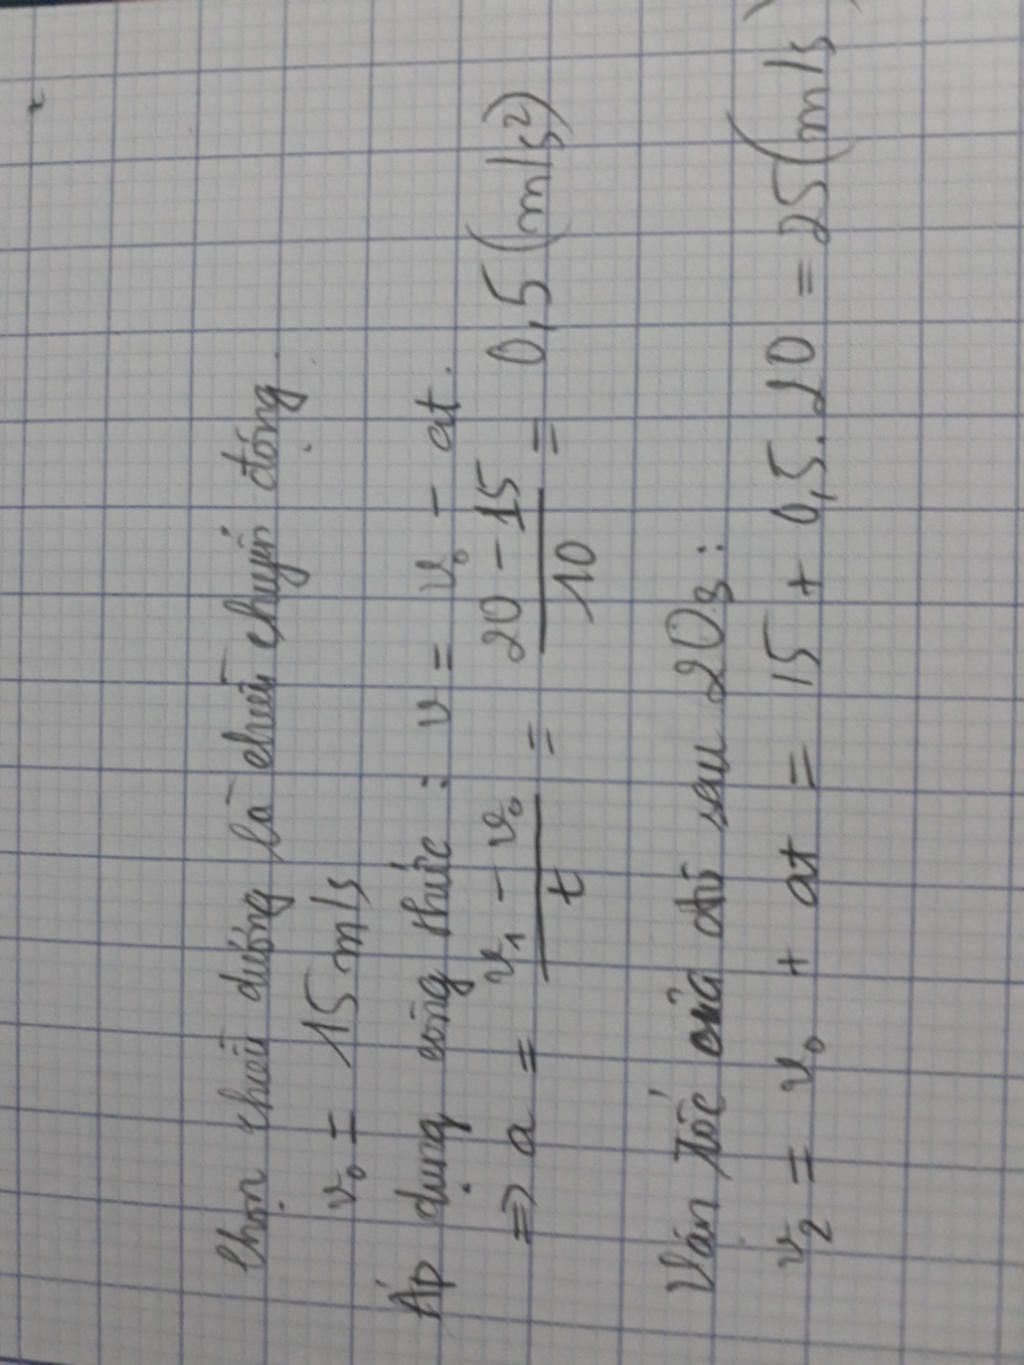 Chọn chiều dương là chiều chuyển động.
v₀ = 15 m/s
Áp dụng công thức : v = v₀ - at.
=> a = (v₁ - v₀)/t = (20 - 15)/10 = 0,5 (m/s²)
Vận tốc của ôtô sau 20s :
v₂ = v₀ + at = 15 + 0,5. 20 = 25 (m/s)